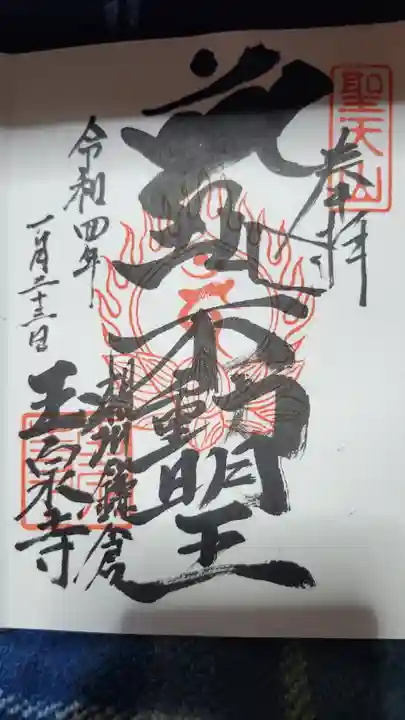 聖天山
奉拝
不動明王
相州鎌倉
令和四年
一月二十三日
玉泉寺